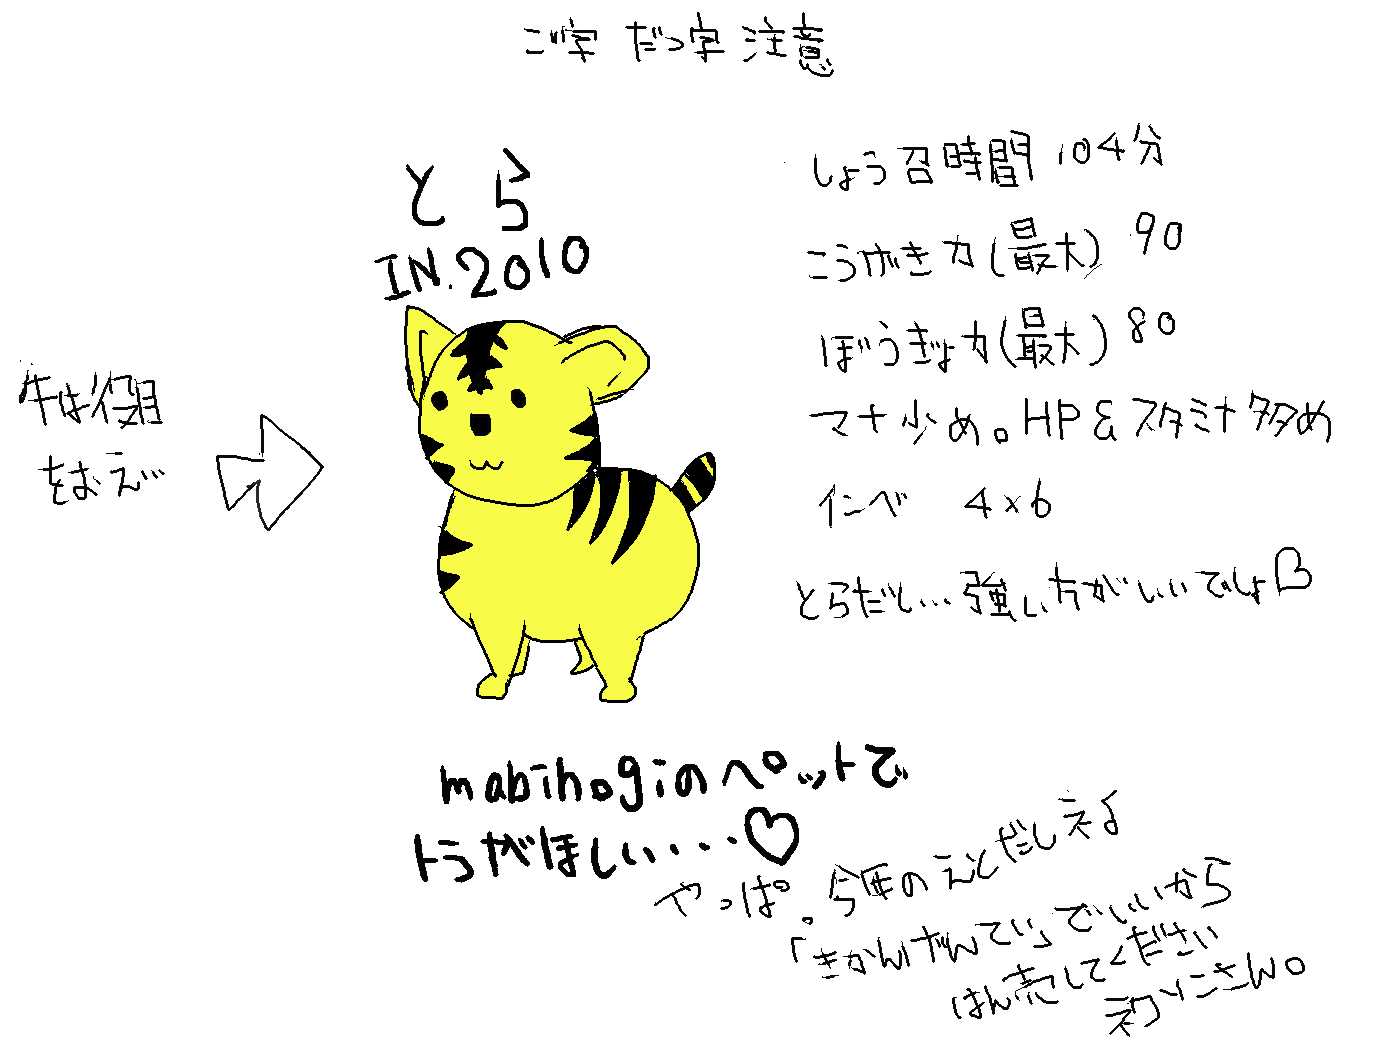 ご字 だつ字 注意
とら
IN.2010
牛は役目
をおえ…
しょう召時間 104分
こうげき力(最大) 90
ぼうぎょ力(最大) 80
マナ少め。HP&スタミナ多め
インベ 4×6
とらだし…強い方がいいでしょ
mabinogiのペットで
トラがほしい・・・♡
やっぱ。今年のえとだしネよ
「きかんげんてい」でいいから
はん売してください
ネクソンさん。